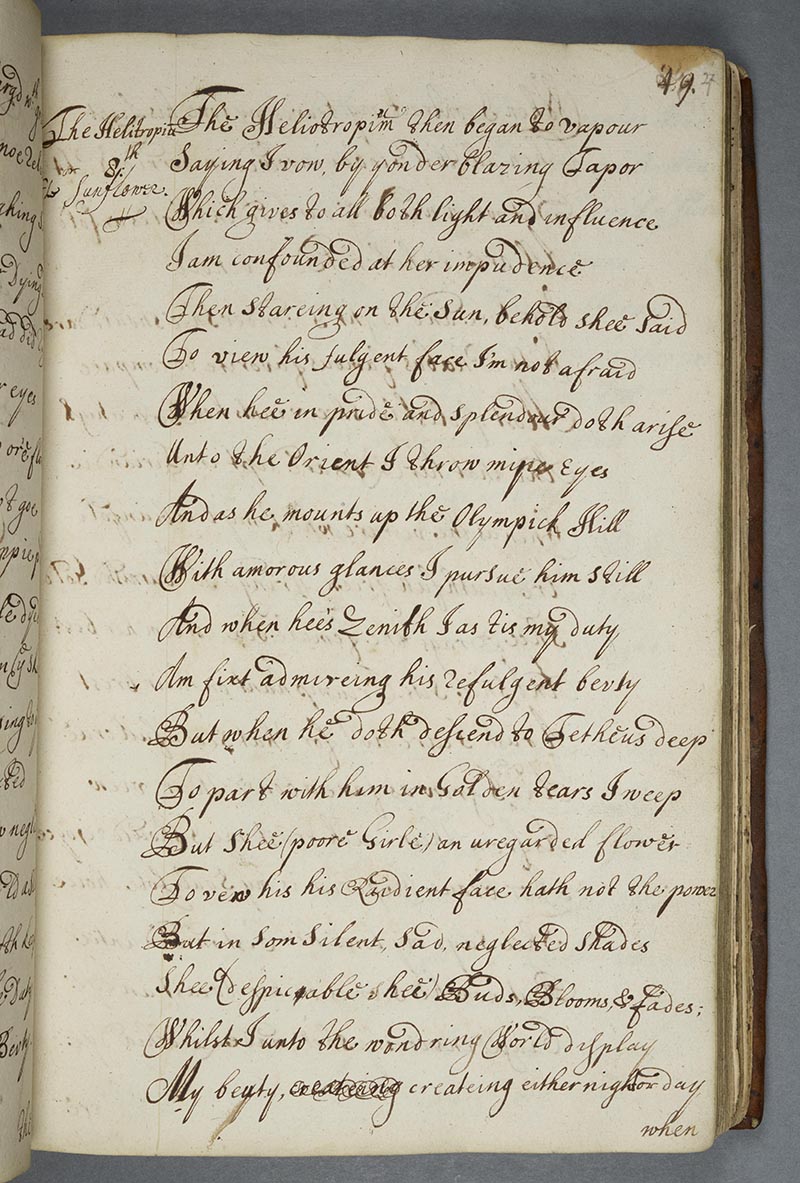 49.
The Helitropiu
8:th
or
Sunflower.
The Heliotropium then began to vapour
Saying I vow, by yonder blazing Tapor
Which gives to all both light and influence
I am confounded at her impudence
Then stareing on the Sun, behold shee said
To view his fulgent face I'm not afraid
When hee in pride and splendour doth arise
Unto the Orient I throw mine Eyes
And as he mounts up the Olympick Hill
With amorous glances I pursue him still
And when hee's Zenith I as tis my duty
Am fixt admireing his refulgent bevty
But when he doth descend to Tetheus deep
To part with him in Golden tears I weep
But Shee (poore Girle) an uregarded flower
To vew his his Raidient face hath not the power
But in som Silent, Sad, neglected Shades
Shee (despicable shee) Buds, Blooms, & fades;
Whilst I unto the wondring World display
My beuty, createing either night or day
when